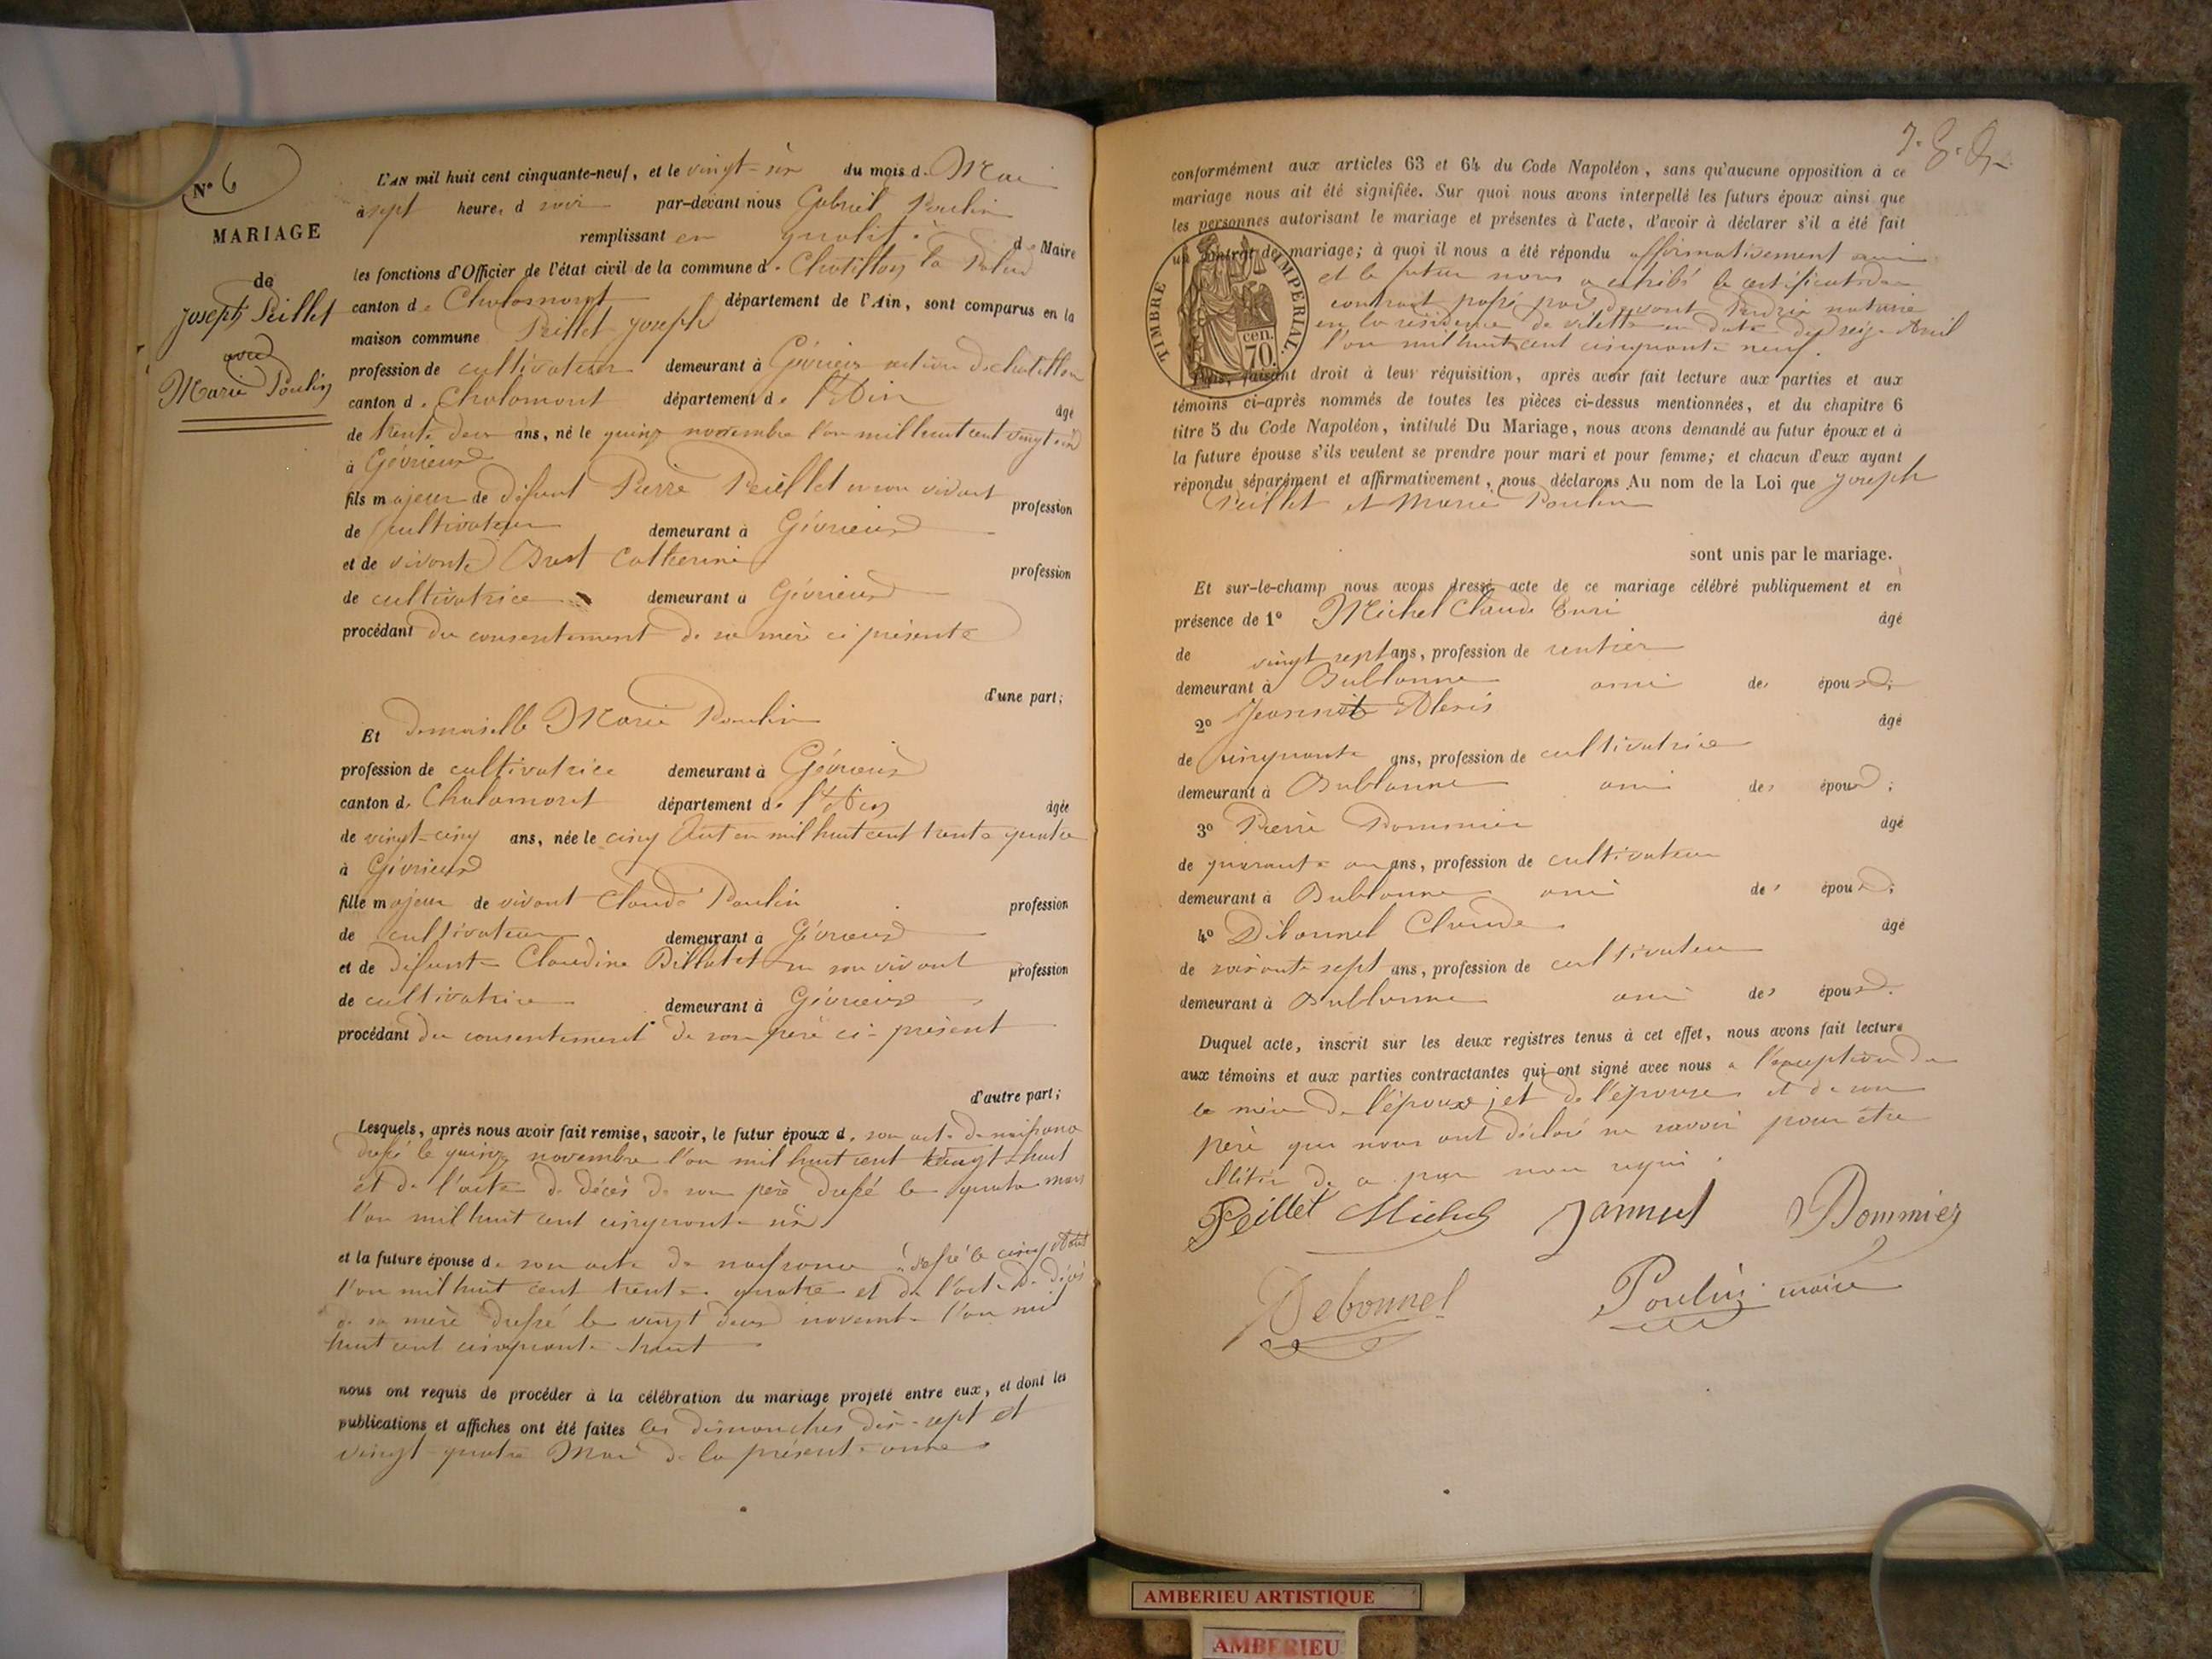 N° 6
MARIAGE
de
Joseph Peillet
avec
Marie Poulin
L'AN mil huit cent cinquante-neuf, et le vingt-six du mois de Mai
à sept heures du soir par-devant nous Gabriel Poulin
remplissant en qualité de Maire
les fonctions d'Officier de l'état civil de la commune de Chatillon la Palud
canton de Chalamont département de l'Ain, sont comparus en la
maison commune Peillet Joseph
profession de cultivateur demeurant à Gévrieux section de chatillon
canton de Chalamont département de l'Ain âgé
de trente deux ans, né le quinze novembre l'an mil huit cent vingt
à Gévrieux
fils majeur de défunt Pierre Peillet en son vivant profession
de cultivateur demeurant à Gévrieux
et de vivante Catherine profession
de cultivatrice demeurant à Gévrieux
procédant du consentement de sa mère ci présente
d'une part;
Et demoiselle Marie Poulin
profession de cultivatrice demeurant à Gévrieux
canton de Chalamont département de l'Ain âgée
de vingt-cinq ans, née le cinq Aout en mil huit cent trente quatre
à Gévrieux
fille majeur de vivant Claude Poulin profession
de cultivateur demeurant à Gévrieux
et de défunte Claudine en son vivant profession
de cultivatrice demeurant à Gévrieux
procédant du consentement de son père ci-présent
d'autre part;
Lesquels, après nous avoir fait remise, savoir, le futur époux de son acte de naissance
dressé le quinze novembre l'an mil huit cent vingt huit
et de l'acte de décès de son père dressé le quatre mars
l'an mil huit cent cinquante six
et la future épouse de son acte de naissance dressé le cinq Aout
l'an mil huit cent trente quatre et de l'acte de décès
de sa mère dressé le vingt deux novembre l'an mil
huit cent cinquante huit
nous ont requis de procéder à la célébration du mariage projeté entre eux, et dont les
publications et affiches ont été faites les dimanches dix-sept et
vingt-quatre Mai de la présente année
conformément aux articles 63 et 64 du Code Napoléon, sans qu'aucune opposition à ce
mariage nous ait été signifiée. Sur quoi nous avons interpellé les futurs époux ainsi que
les personnes autorisant le mariage et présentes à l'acte, d'avoir à déclarer s'il a été fait
un contrat de mariage; à quoi il nous a été répondu affirmativement
et le futur nous a exhibé le certificat de
contrat passé par devant notaire
en la résidence de vilette en date du seize Avril
l'an mil huit cent cinquante neuf.
TIMBRE IMPERIAL.
cen.
70.
Puis, faisant droit à leur réquisition, après avoir fait lecture aux parties et aux
témoins ci-après nommés de toutes les pièces ci-dessus mentionnées, et du chapitre 6
titre 5 du Code Napoléon, intitulé Du Mariage, nous avons demandé au futur époux et à
la future épouse s'ils veulent se prendre pour mari et pour femme; et chacun d'eux ayant
répondu séparément et affirmativement, nous déclarons Au nom de la Loi que Joseph
Peillet et Marie Poulin
sont unis par le mariage.
Et sur-le-champ nous avons dressé acte de ce mariage célébré publiquement et en
présence de 1° Michel Claude âgé
de vingt sept ans, profession de rentier
demeurant à Bublanne ami des époux;
2° Alexis âgé
de cinquante ans, profession de cultivatrice
demeurant à Bublanne ami des époux;
3° Pierre Pommier âgé
de quarante un ans, profession de cultivateur
demeurant à Bublanne ami des époux;
4° Débonnel Claude âgé
de soixante sept ans, profession de cultivateur
demeurant à Bublanne ami des époux.
Duquel acte, inscrit sur les deux registres tenus à cet effet, nous avons fait lecture
aux témoins et aux parties contractantes qui ont signé avec nous a l'exception de
la mère de l'époux, et de l'épouse et de son
père qui nous ont déclaré ne savoir pour être
de ce par nous requis.
Peillet Michel Pommier
Debonnel Poulin maire
AMBERIEU ARTISTIQUE
AMBERIEU